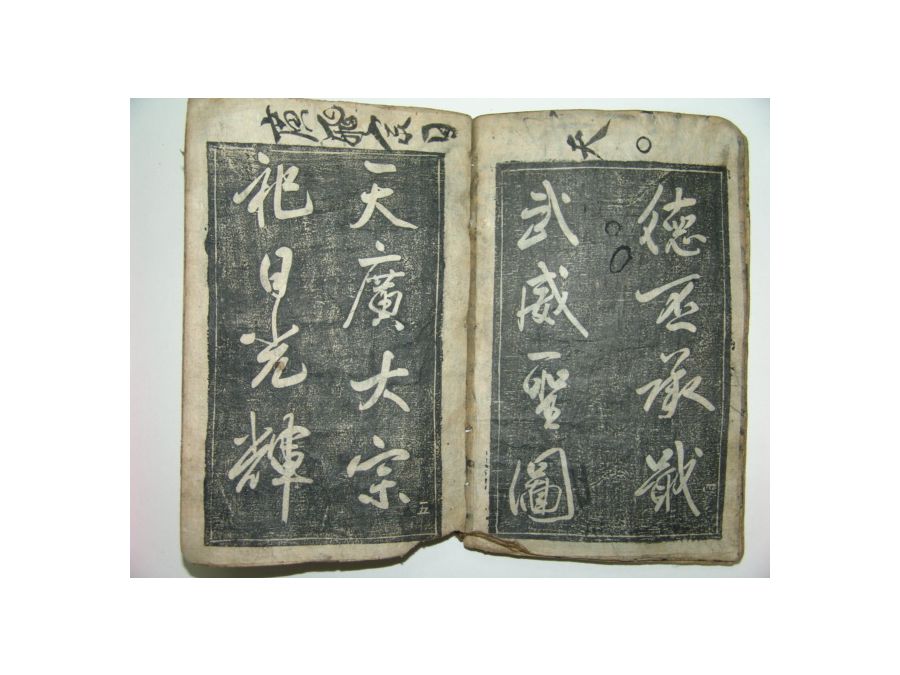 天
德丕承戢
武威聖圖
四
天廣大宗
祀日光輝
五